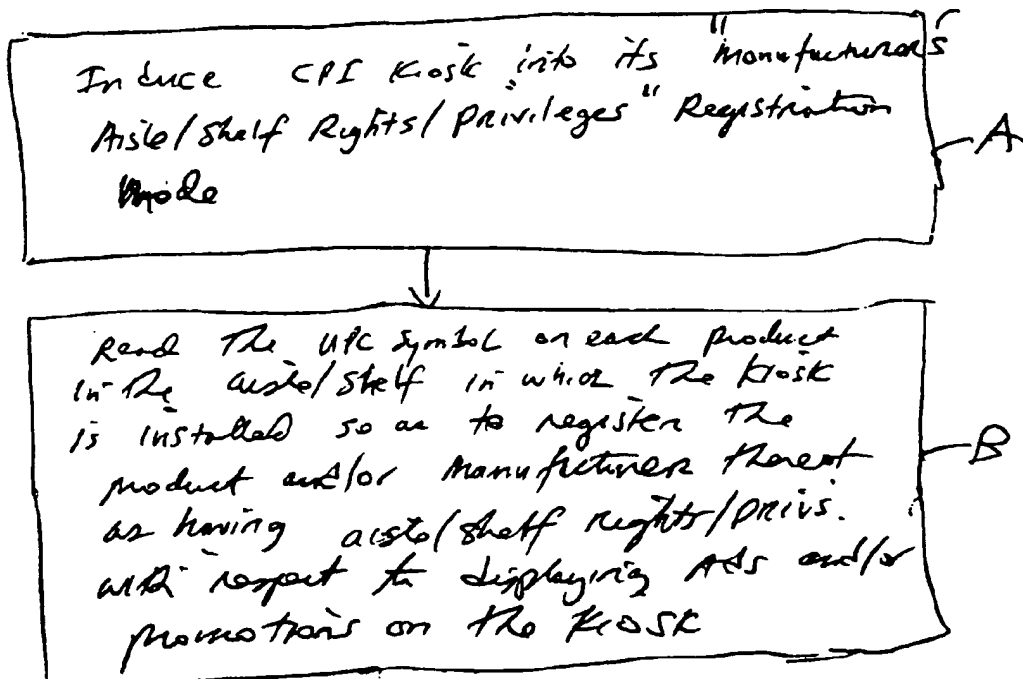 Induce CPI Kiosk into its "Manufacturers
Aisle/Shelf Rights/Privileges" Registration
Mode
A
Read the UPC symbol on each product
in the aisle/shelf in which the kiosk
is installed so as to register the
product and/or manufacturer thereof
as having aisle/shelf rights/privs.
with respect to displaying Ads and/or
promotions on the Kiosk
B